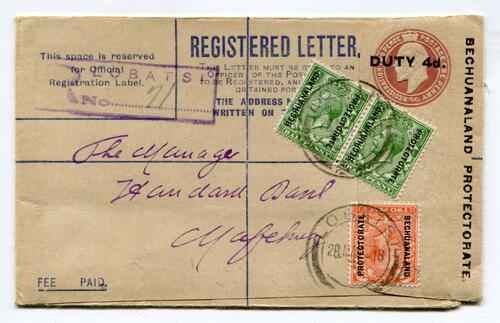 REGISTERED LETTER.
This space is reserved
for Official
Registration Label.
LOBATSI
No. 71
THE LETTER MUST BE GIVEN TO AN
OFFICER OF THE POST
TO BE REGISTERED, AND
OBTAINED FOR
THE ADDRESS M
WRITTEN ON
DUTY 4d.
BECHUANALAND PROTECTORATE.
BECHUANALAND
PROTECTORATE
BECHUANALAND
PROTECTORATE
The Manager
Standard Bank
Mafeking
BECHUANALAND
PROTECTORATE
FEE PAID.